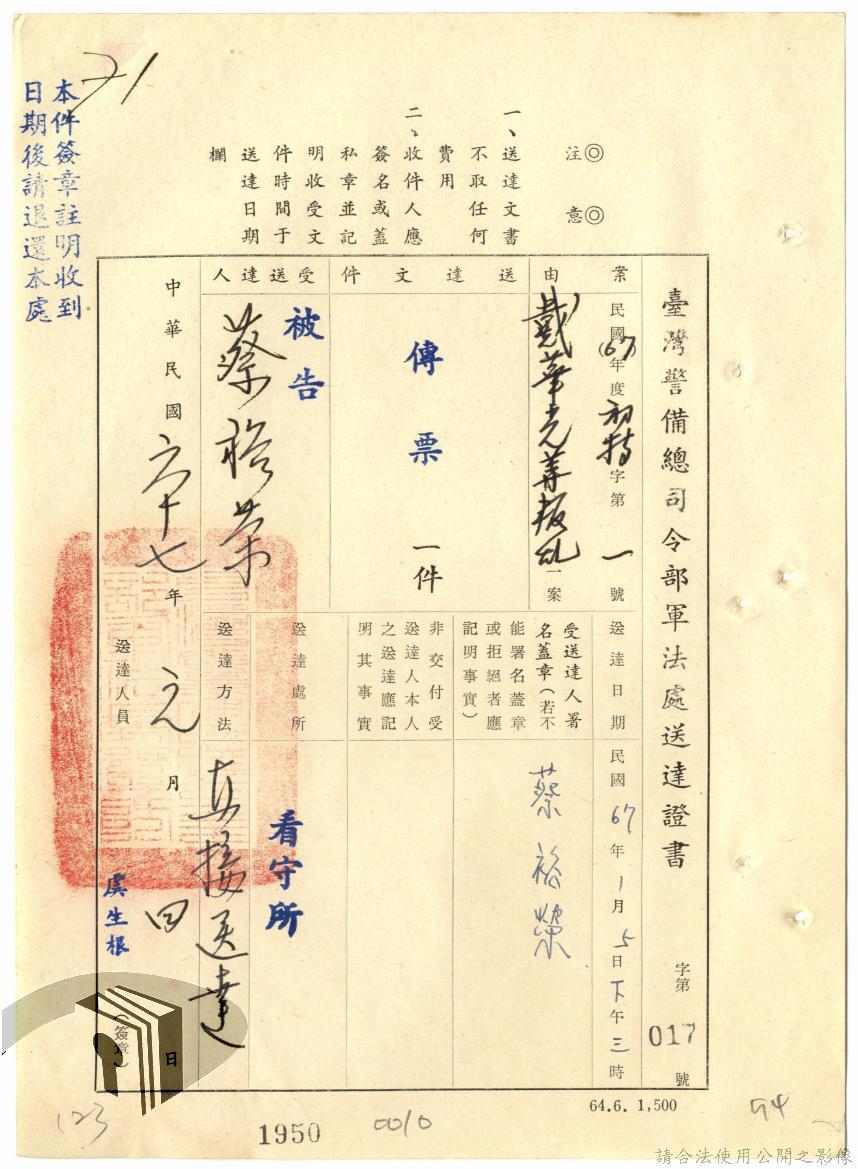 21
本件簽章註明收到
日期後請退還本處
注意
一、送達文書
不取任何
費用
二、收件人應
簽名或蓋
私章並記
明收受文
件時間于
送達日期
欄
臺灣警備總司令部軍法處送達證書
字第
017
號
案由
民國(67)年度初特字第一號
戴華光等叛乱一案
送達文件
傳票一件
受送達人
被告
蔡裕榮
送達日期
民國67年1月5日下午三時
受送達人署
名蓋章(若不
能署名蓋章
或拒絕者應
記明事實)
蔡裕榮
非交付受
送達人本人
之送達應記
明其事實
送達處所
看守所
送達方法
直接送達
中華民國六十七年元月四日
送達人員
虞生根
(簽章)
64.6. 1,500
123
1950
0010
94
請合法使用公開之影像